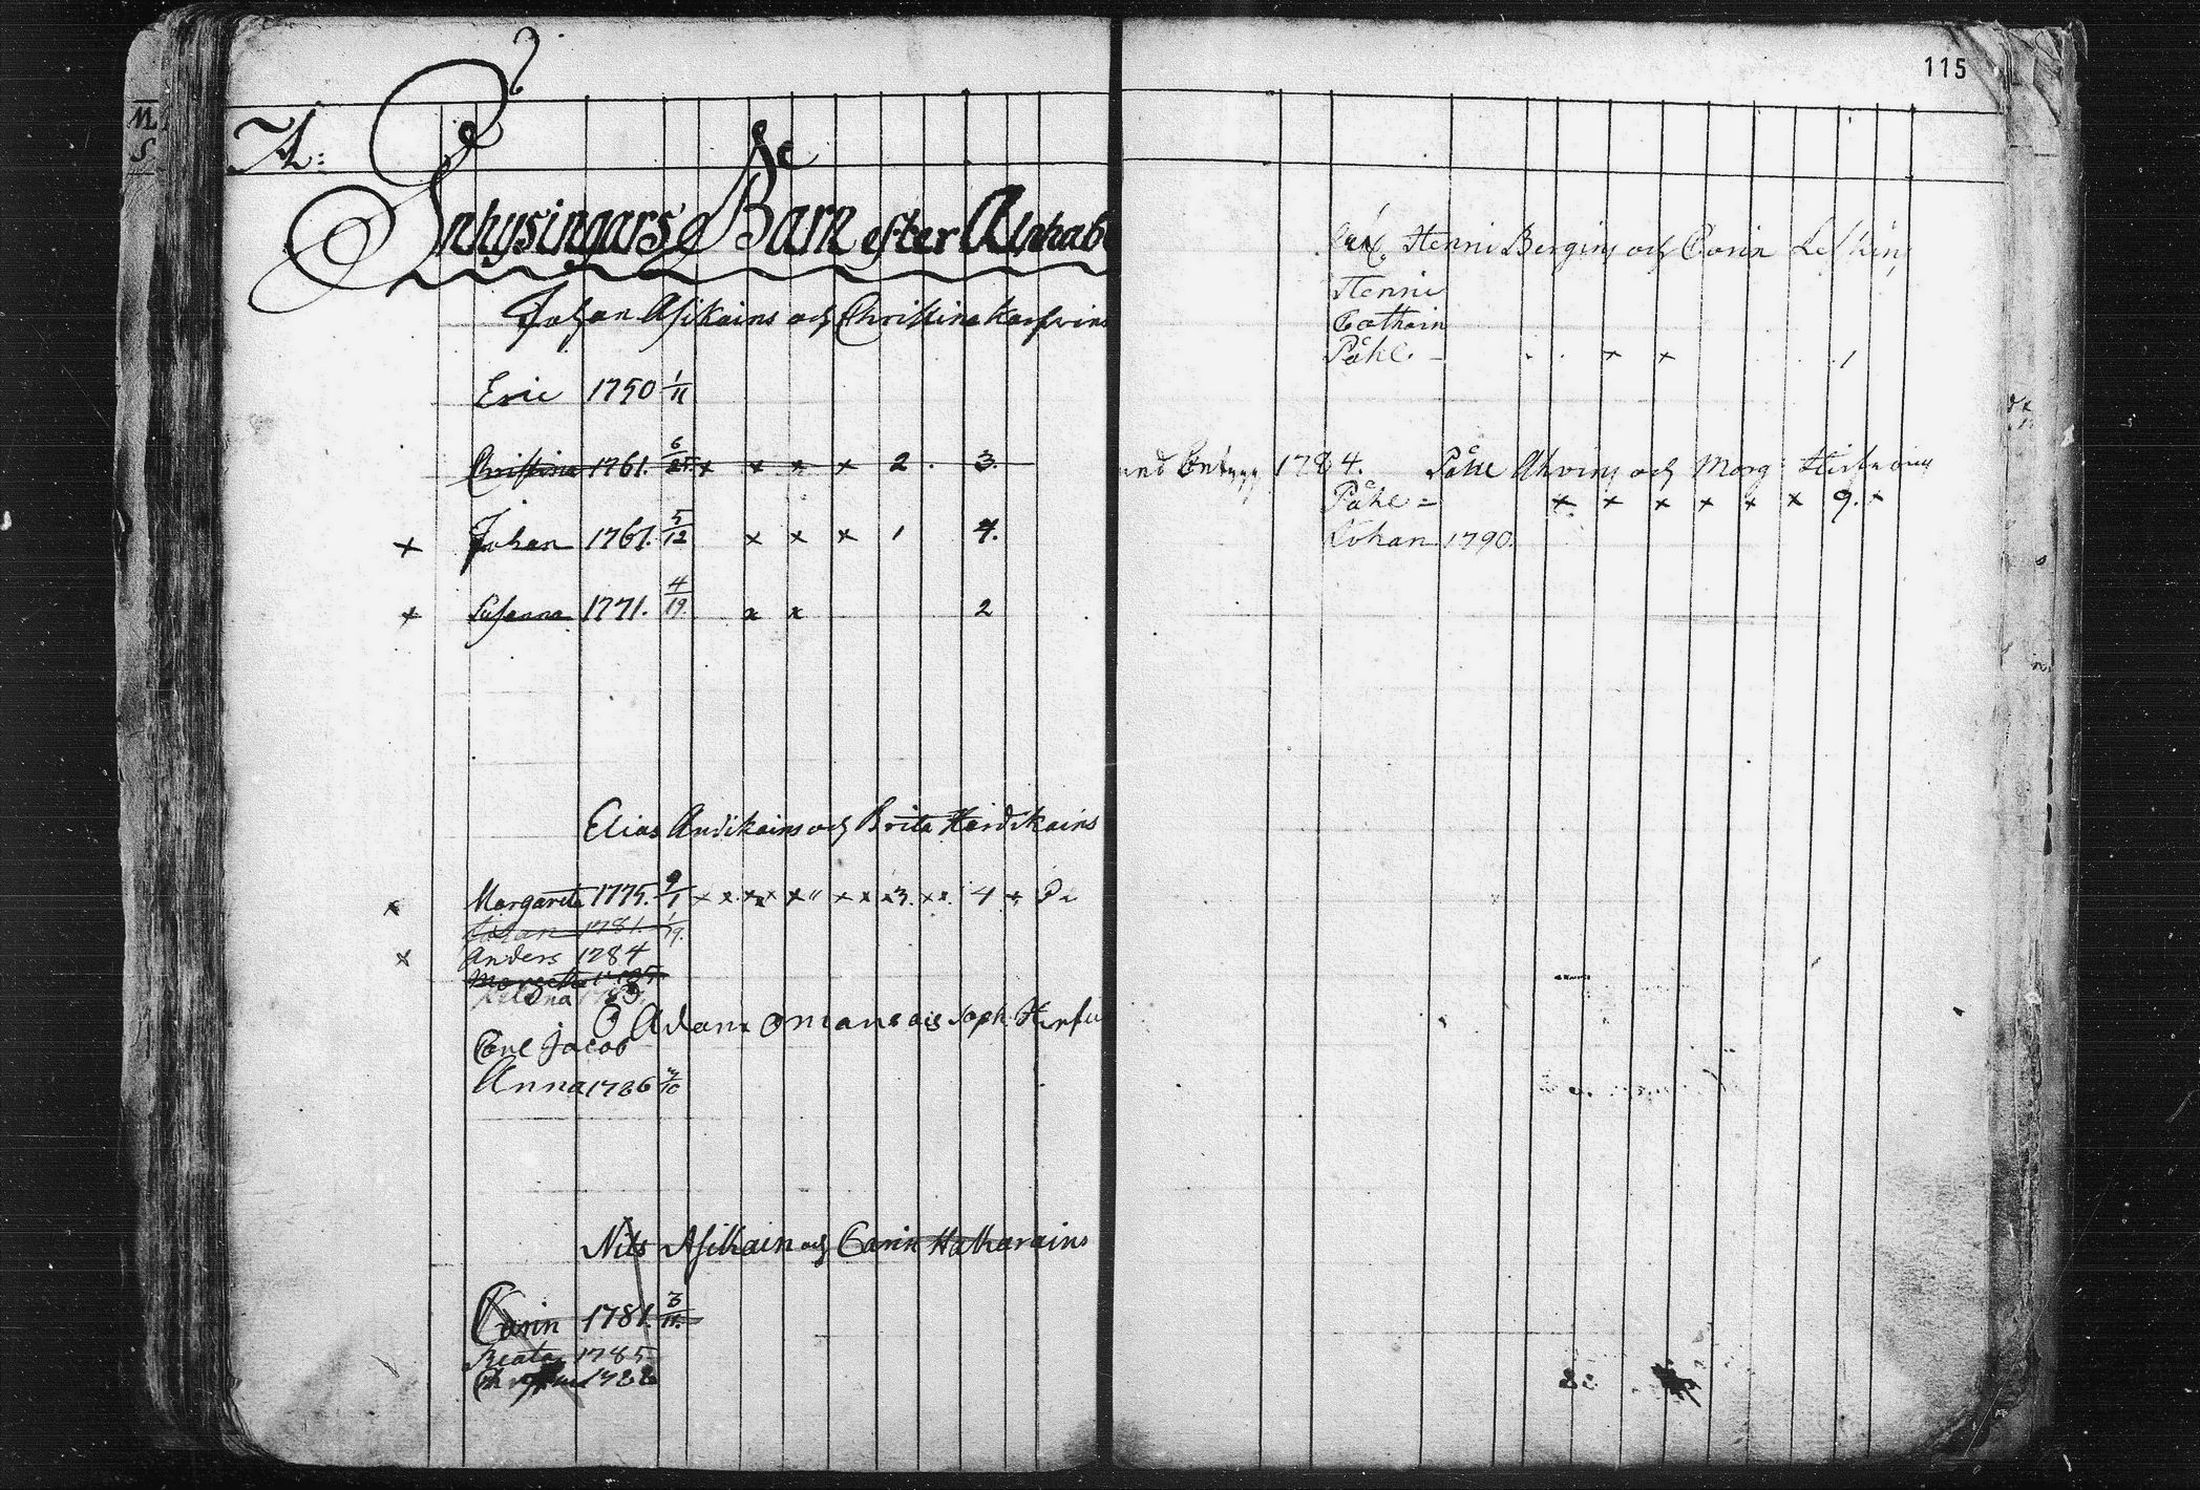 M
S
A:
Inhysingars Barn efter Alphab
Johan Asikains och Christina Karfvin
Eric 1750 1/11
Christina 1761. 6/25. x x x x 2. 3.
x Johan 1767. 5/12 x x x 1 4.
x Susanna 1771. 4/19. x x 2
Elias Andikains och Brita Hardikains
x Margareta 1775. 9/1 x x x x x x x 3. x x 4
Johan 1781. 1/19.
x Anders 1784
Adam och Soph. Hirfu
Carl Jacob
Anna 1786 /10
Nils Asikain och Carin Hakarains
Carin 1781. 3/11.
Beata 1785
1788
115
Henric Bergins och Carin
Henric
Cathain
Påhl. - x x 1
1784. Påhl Ahvins och Marg
Påhl = x x x x x x 9. x
Johan 1790.